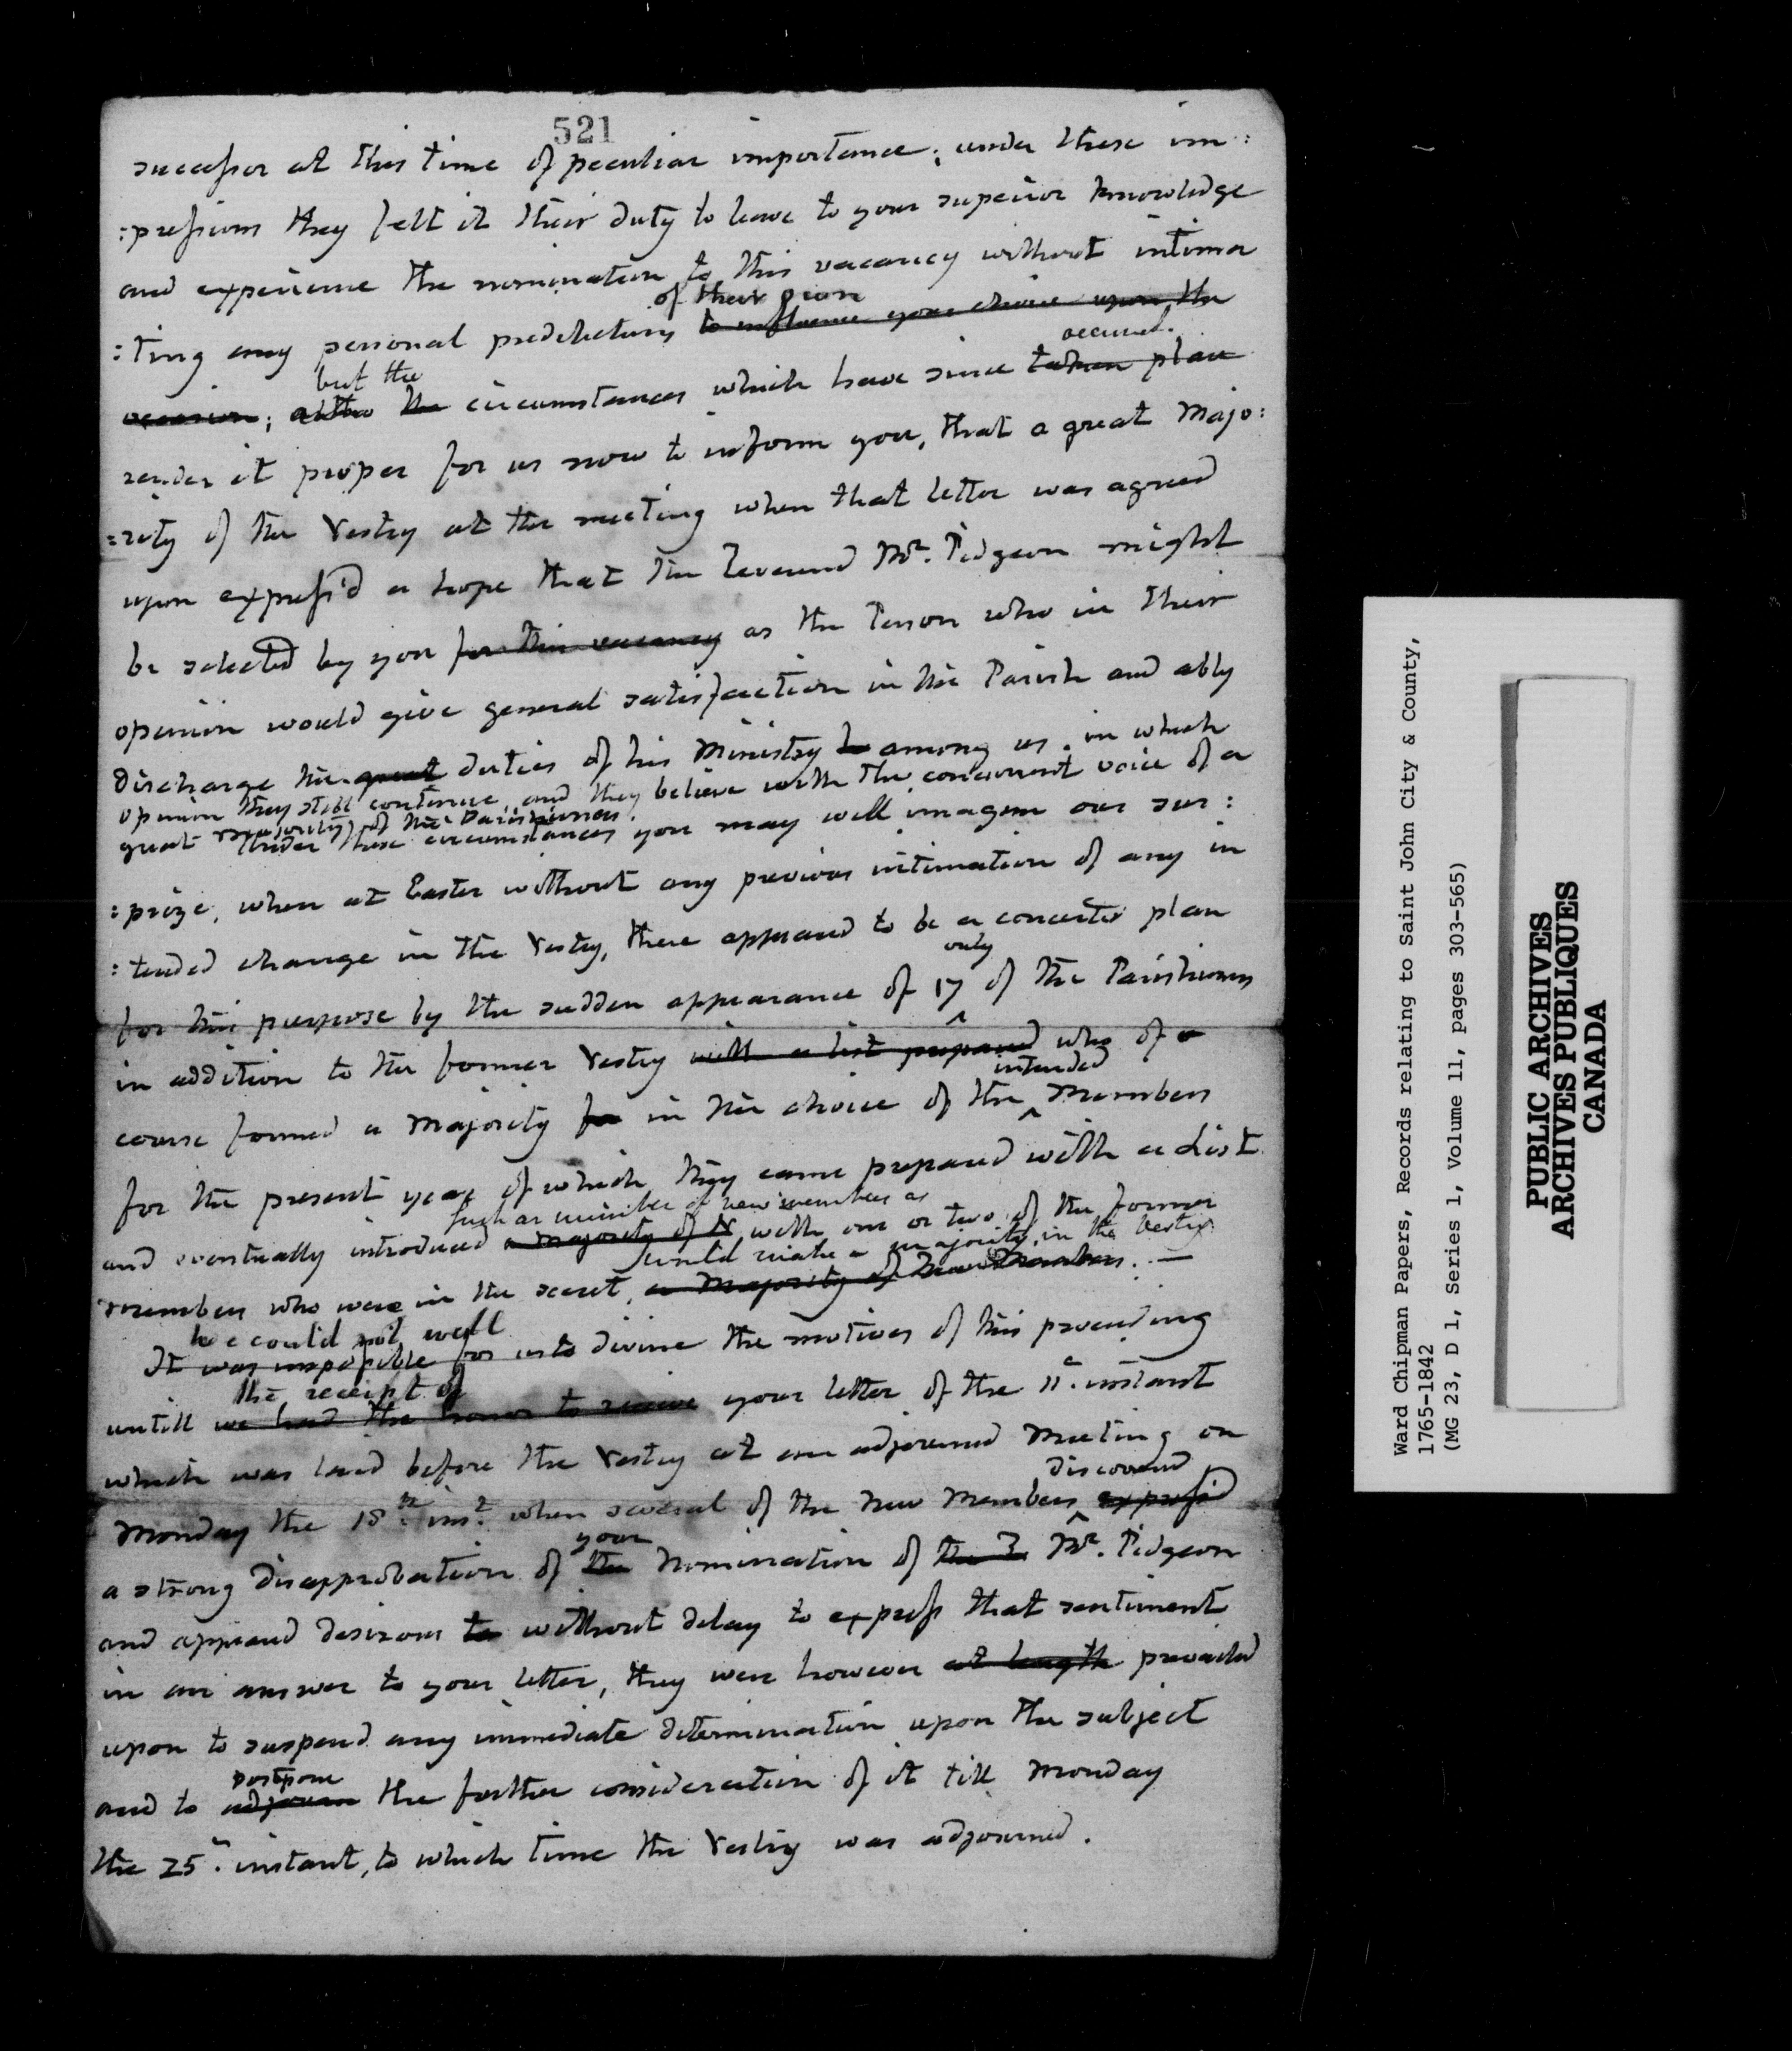 521
successor at this time of peculiar importance; under these im:
:pressions they felt it their duty to leave to your superior knowledge
and experience the nomination to this vacancy without intima
of their own
:ting any personal predilections to influence your choice upon the
but the
occurred.
occasion; altho the circumstances which have since taken place
render it proper for us now to inform you, that a great Majo:
:rity of the Vestry at the meeting when that letter was agreed
upon express'd a hope that the Reverend Mr. Pidgeon might
be selected by you for this vacancy as the Person who in their
opinion would give general satisfaction in the Parish and ably
discharge the great duties of his Ministry among us. in which
opinion they still continue, and they believe with the concurrent voice of a
great majority of the Parishioners.
Under these circumstances you may well imagine our sur:
:prize, when at Easter without any previous intimation of any in
:tended change in the Vestry, there appeared to be a concerted plan
only
for this purpose by the sudden appearance of 17 of the Parishioners
in addition to the former Vestry with a list prepared who of
intended
course formed a Majority for in the choice of the Members
for the present year of which they came prepared with a List
such a number of new members as
and eventually introduced a majority of N with one or two of the former
would make a majority in the Vestry.
members who were in the secret, a Majority of New Members. —
We could not well
It was impossible for us to divine the motives of this proceeding
the receipt of
untill we had the honor to receive your letter of the 11th. instant
which was laid before the Vestry at an adjourned Meeting on
discovered
Monday the 18th. inst. when several of the new Members express'd
your
a strong disapprobation of the Nomination of the R Mr. Pidgeon
and appeared desirous to without delay to express that sentiment
in an answer to your letter, they were however at length prevailed
upon to suspend any immediate determination upon the subject
postpone
and to adjourn the further consideration of it till Monday
the 25th. instant, to which time the Vestry was adjourned.
Ward Chipman Papers, Records relating to Saint John City & County,
1765-1842
(MG 23, D 1, Series 1, Volume 11, pages 303-565)
PUBLIC ARCHIVES
ARCHIVES PUBLIQUES
CANADA